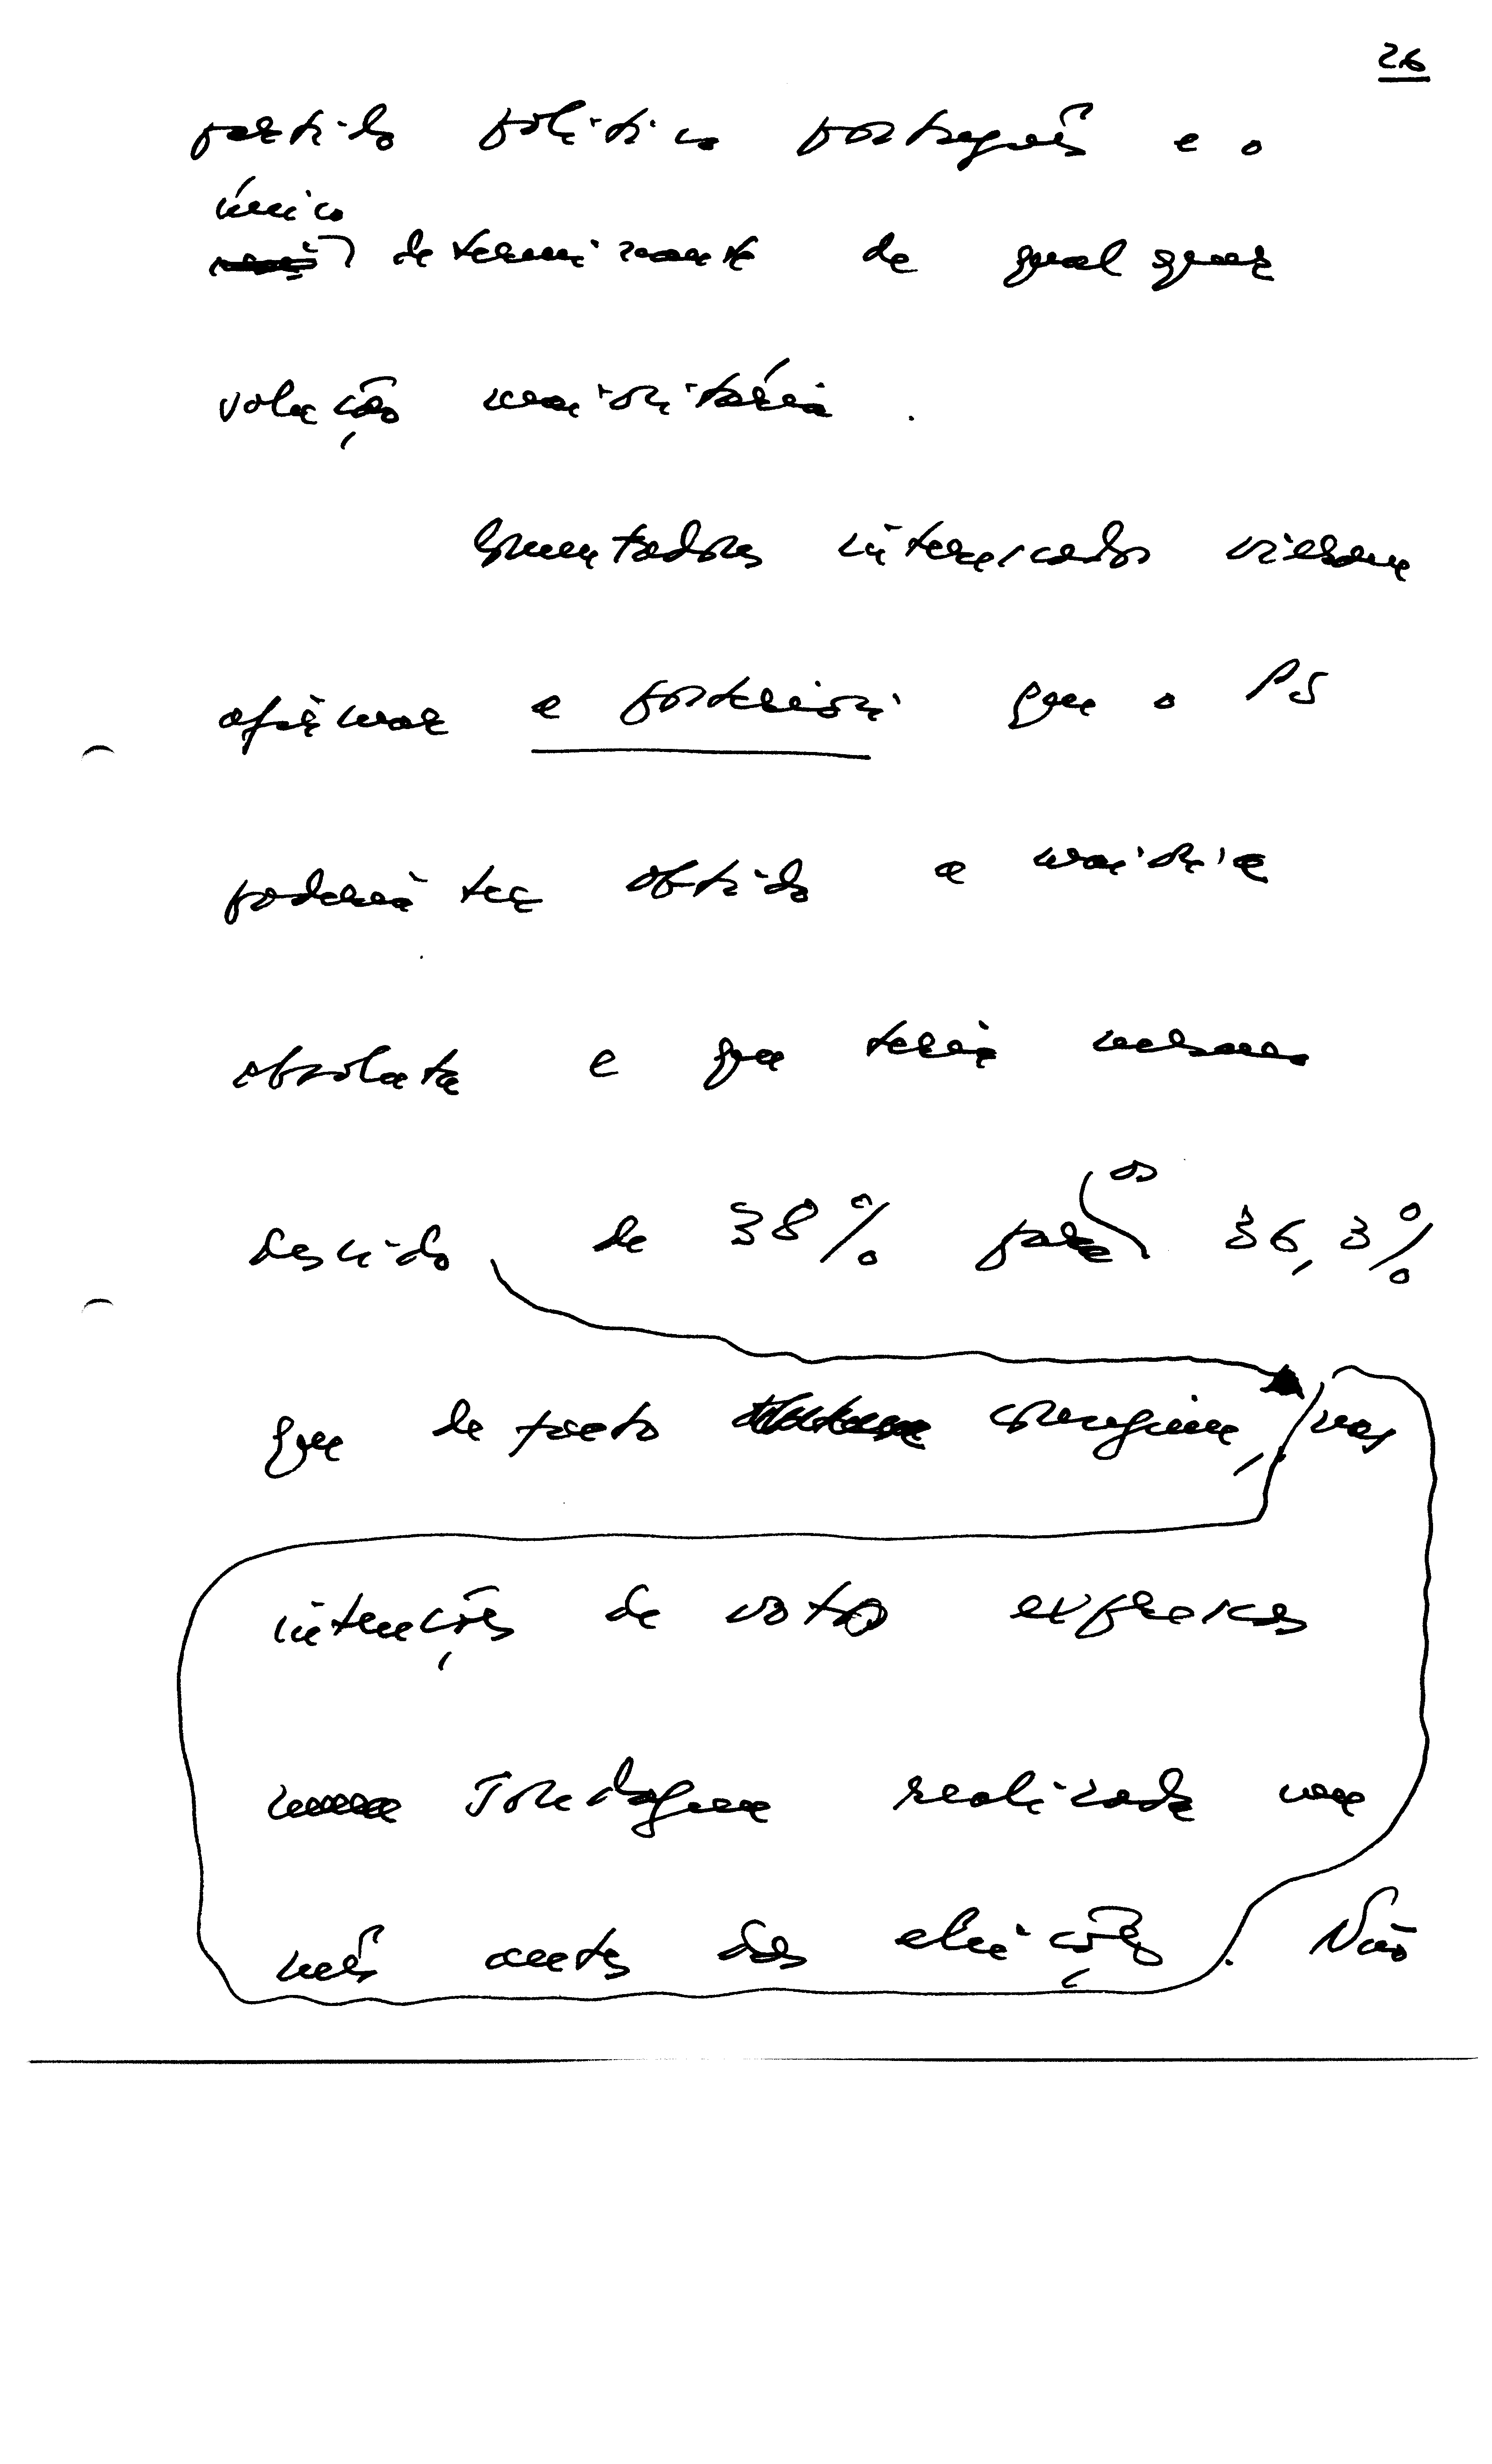 26
partido político português e o
único
determinante de qualquer
votação maioritária.
Comentadores interessados vieram
afirmar a posteriori que o PS
poderia ter obtido a maioria
absoluta e que teria mesmo
descido de 38% para os 36,3%
que de facto conseguiu, nas
intenções de voto expressas
numa sondagem realizada um
mês antes das eleições. Não